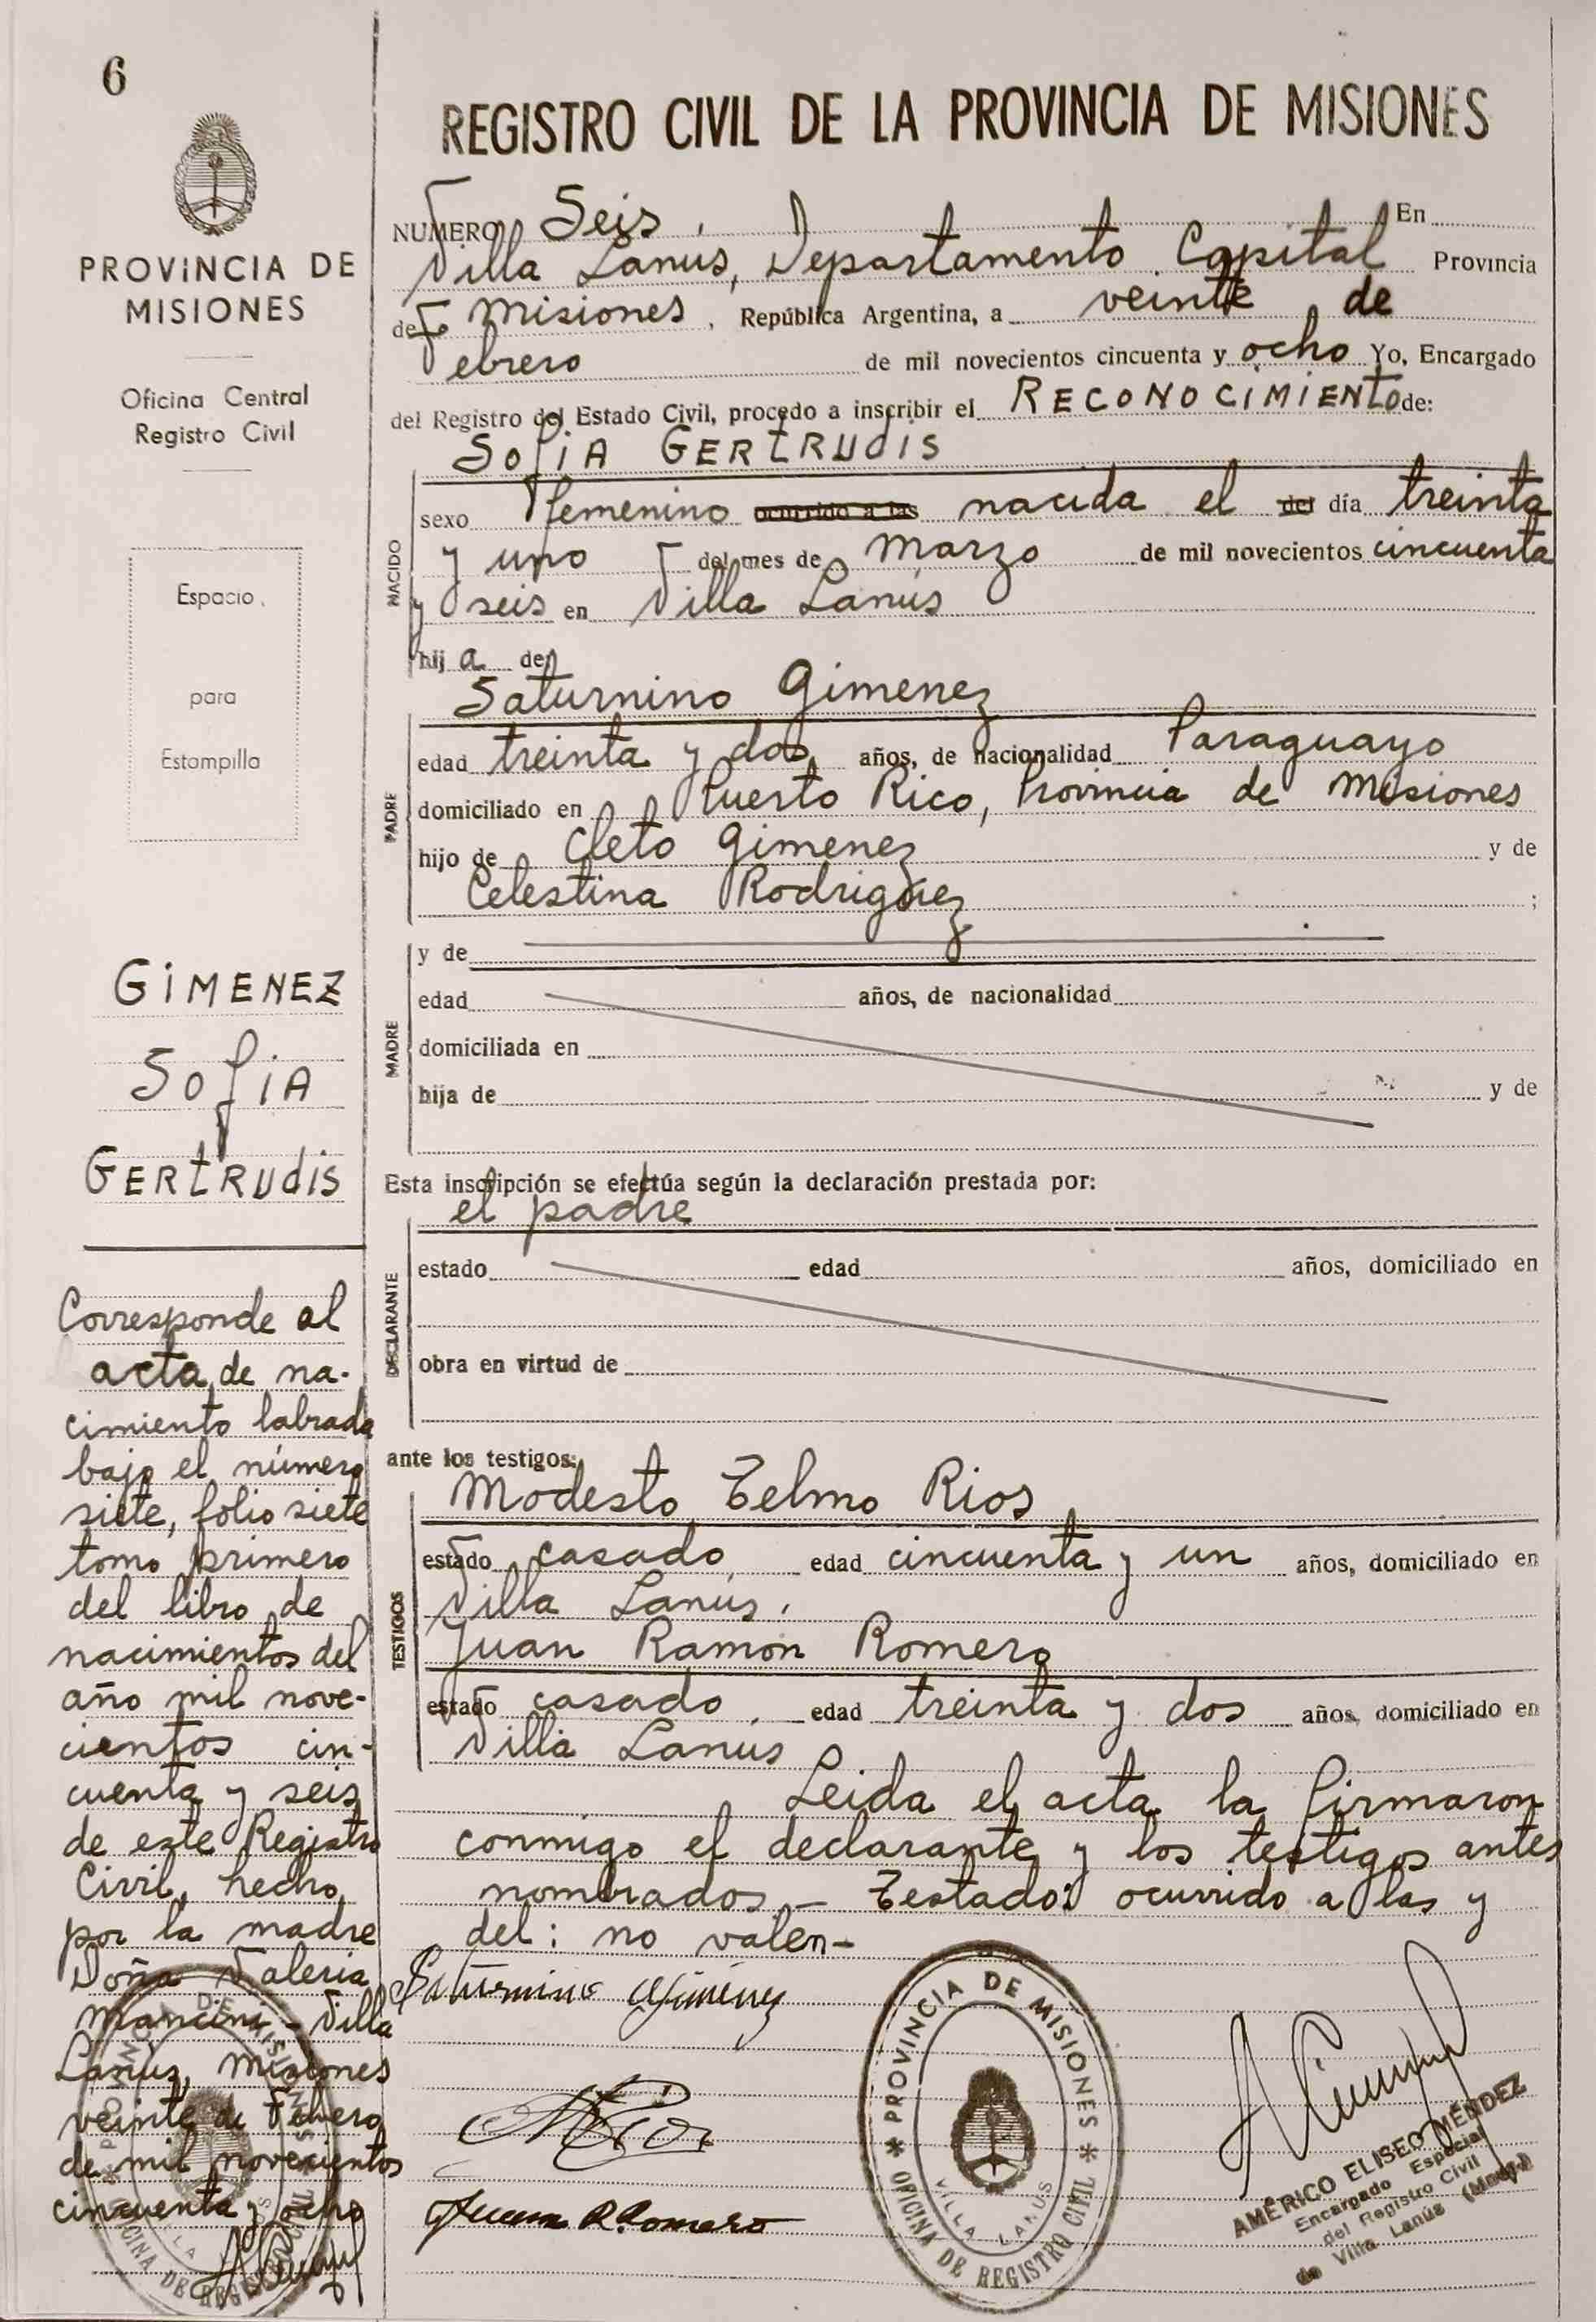 6
PROVINCIA DE
MISIONES
Oficina Central
Registro Civil
Espacio
para
Estampilla
GIMENEZ
SOfIA
GERTRUdIS
Corresponde al
acta de na-
cimiento labrada
bajo el número
siete, folio siete
tomo primero
del libro de
nacimientos del
año mil nove-
cientos cin-
cuenta y seis
de este Registro
Civil, hecho
por la madre
Doña Valeria
Mancini - Villa
Lanús, Misiones
veinte de Febrero
de mil novecientos
cincuenta y ocho
REGISTRO CIVIL DE LA PROVINCIA DE MISIONES
NUMERO Seis, En
Villa Lanús, Departamento Capital Provincia
de Misiones, República Argentina, a veinte de
Febrero de mil novecientos cincuenta y ocho Yo, Encargado
del Registro del Estado Civil, procedo a inscribir el RECONOCIMIENTO de:
SOfIA GERTRUdIS
NACIDO
sexo femenino ocurrido a las nacida el del día treinta
y uno del mes de marzo de mil novecientos cincuenta
y seis en Villa Lanús
hija de
Saturnino Gimenez
PADRE
edad treinta y dos años, de nacionalidad Paraguayo
domiciliado en Puerto Rico, Provincia de Misiones
hijo de Cleto Gimenez y de
Celestina Rodriguez ;
MADRE
y de
edad años, de nacionalidad
domiciliada en
hija de y de
Esta inscripción se efectúa según la declaración prestada por:
el padre
DECLARANTE
estado edad años, domiciliado en
obra en virtud de
ante los testigos:
Modesto Telmo Rios
TESTIGOS
estado casado edad cincuenta y un años, domiciliado en
Villa Lanús,
Juan Ramón Romero
estado casado, edad treinta y dos años, domiciliado en
Villa Lanús
Leida el acta la firmaron
conmigo el declarante y los testigos antes
nombrados - Testado: ocurrido a las y
del: no valen-
Saturnino Gimenez
M T Rios
Juan R. Romero
* PROVINCIA DE MISIONES *
OFICINA DE REGISTRO CIVIL
VILLA LANUS
AMÉRICO ELISEO MÉNDEZ
Encargado Especial
del Registro Civil
de Villa Lanús (Mnes.)